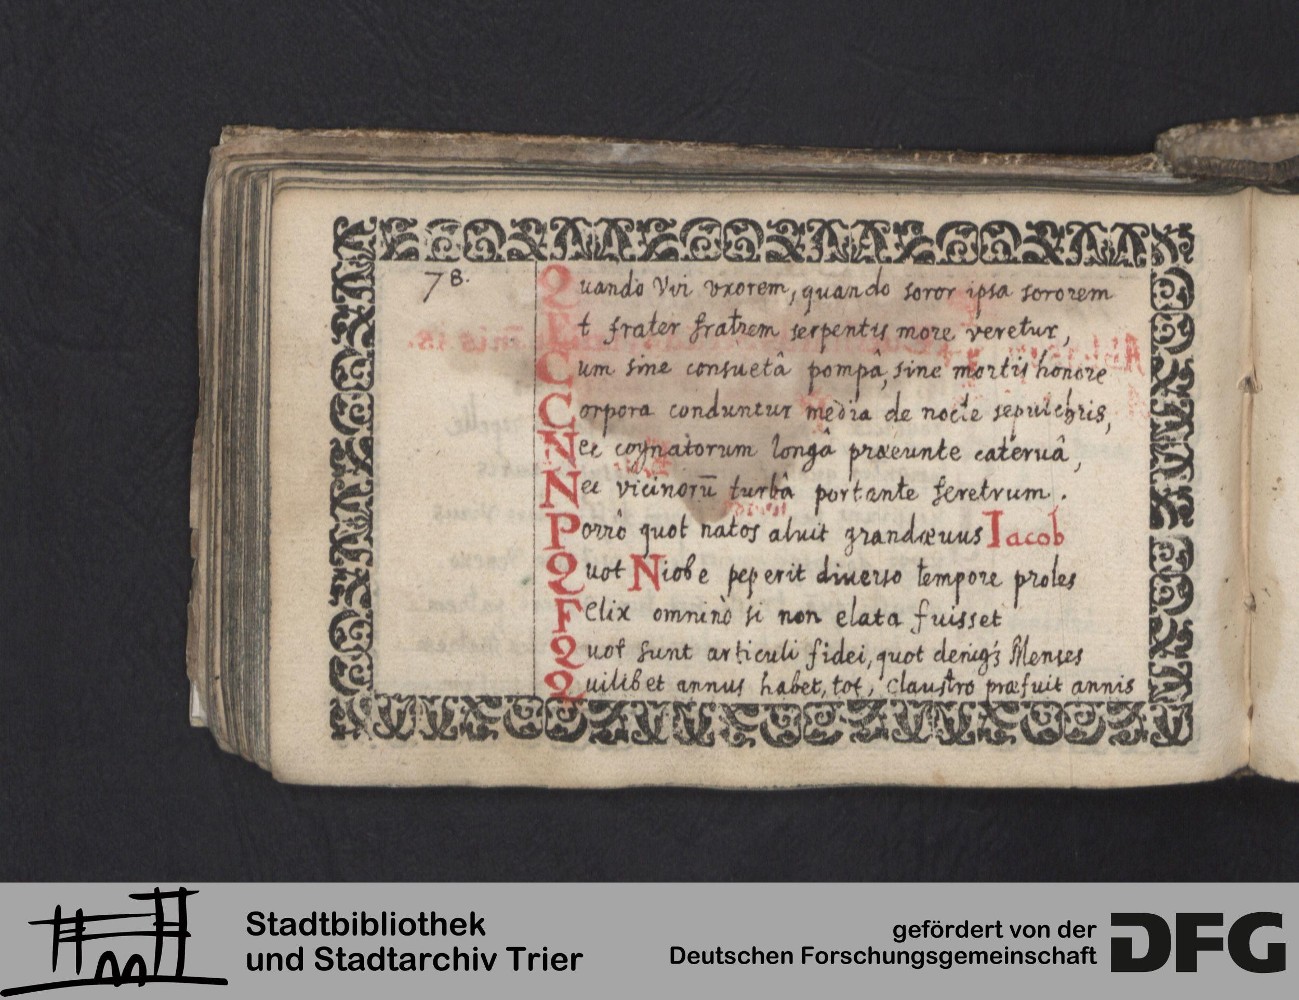 78.
Quando Vvi vxorem, quando soror ipsa sororem
Et frater fratrem serpentis more veretur,
Cum sine consuetâ pompâ, sine mortis honore
Corpora conduntur media de nocte sepulchris,
Nec cognatorum longâ præeunte cateruâ,
Nec vicinorū turbâ portante feretrum.
Porrò quot natos aluit grandæuus Iacob
Quot Niobe peperit diuerso tempore proles
Felix omninò si non elata fuisset
Quot sunt articuli fidei, quot Menses
Quilibet annus habet, tot, Claustro præfuit annis
Stadtbibliothek
und Stadtarchiv Trier
gefördert von der
Deutschen Forschungsgemeinschaft
DFG